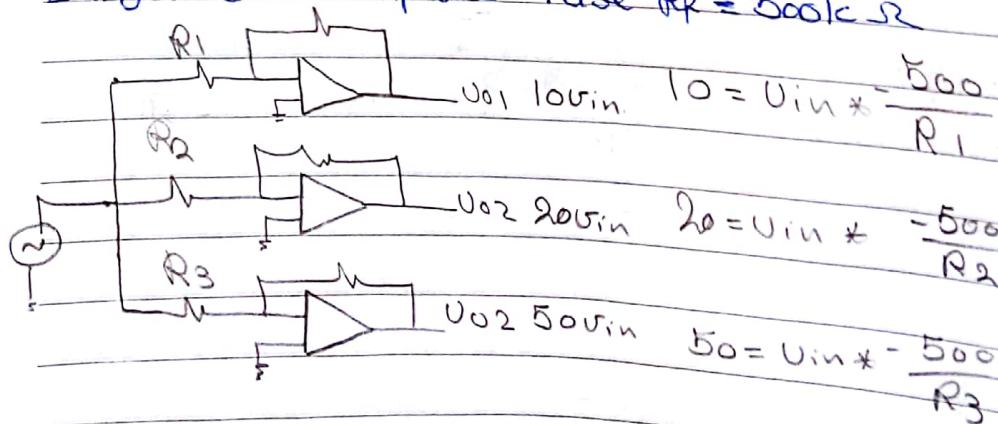 Use Rf = 500k Ω
R1
Uo1 10vin 10 = Uin * - 500 / R1
R2
Uo2 20vin 20 = Uin * - 500 / R2
R3
Uo2 50vin 50 = Uin * - 500 / R3